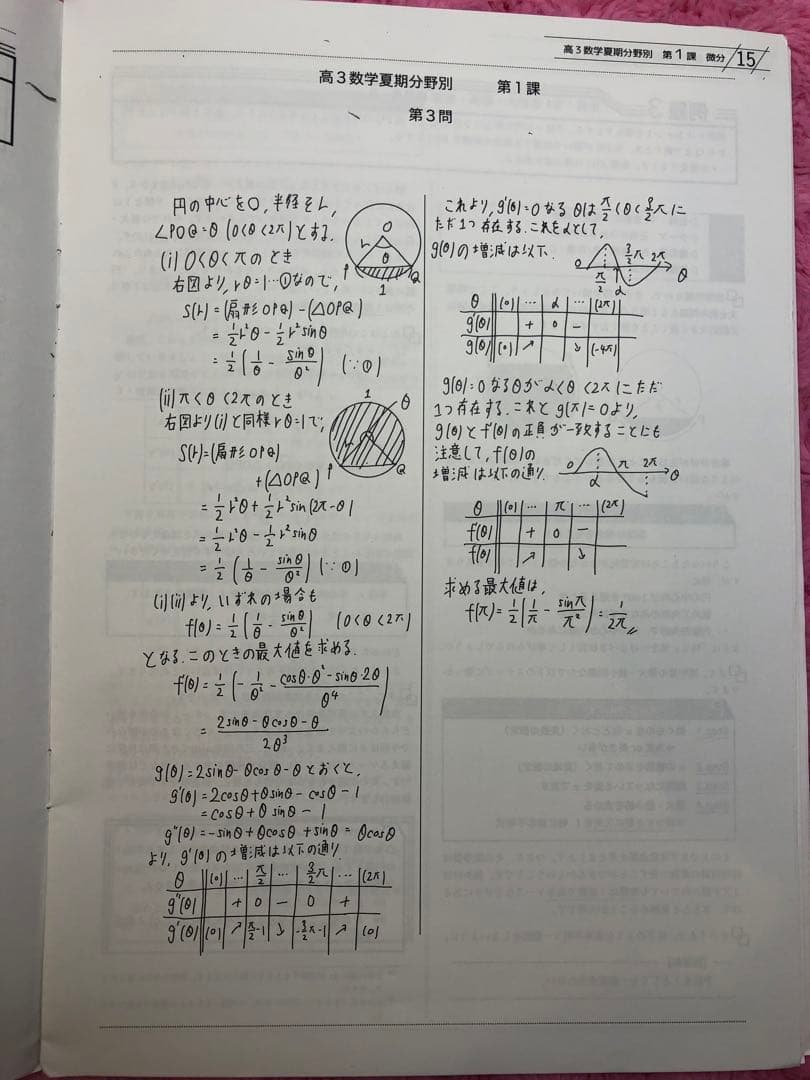 高3数学夏期分野別 第1課 微分 15
高3数学夏期分野別 第1課
第3問
円の中心をO,半径をr,
∠POQ=θ (0<θ<2π)とする.
(i) 0<θ<πのとき
右図より, rθ=1…①なので,
S(r)=(扇形OPQ)-(△OPQ)
=1/2 r²θ - 1/2 r² sinθ
=1/2 (1/θ - sinθ/θ²) (∵①)
O
r
θ
P
Q
1
(ii) π<θ<2πのとき
右図より(i)と同様rθ=1で,
S(r)=(扇形OPQ)
+(△OPQ)
=1/2 r²θ + 1/2 r² sin(2π-θ)
=1/2 r²θ - 1/2 r² sinθ
=1/2 (1/θ - sinθ/θ²) (∵①)
1
θ
r
P
Q
(i)(ii)より,いずれの場合も
f(θ)=1/2 (1/θ - sinθ/θ²) (0<θ<2π)
となる.このときの最大値を求める.
f'(θ)=1/2 (-1/θ² - (cosθ・θ²-sinθ・2θ)/θ⁴)
=(2sinθ-θcosθ-θ)/2θ³
g(θ)=2sinθ-θcosθ-θとおくと,
g'(θ)=2cosθ+θsinθ-cosθ-1
=cosθ+θsinθ-1
g''(θ)=-sinθ+θcosθ+sinθ=θcosθ
より, g'(θ)の増減は以下の通り.
θ (0) … π/2 … 3/2π … (2π)
g''(θ) + 0 - 0 +
g'(θ) (0) ↗ π/2-1 ↘ -3/2π-1 ↗ (0)
これより, g'(θ)=0なるθはπ/2<θ<3/2πに
ただ1つ存在する.これをαとして,
g(θ)の増減は以下.
0 π/2 α 3/2π 2π θ
θ (0) … α … (2π)
g'(θ) + 0 -
g(θ) (0) ↗ ↘ (-4π)
g(θ)=0なるθがα<θ<2πにただ
1つ存在する.これとg(π)=0より,
g(θ)とf'(θ)の正負が一致することにも
注意して, f(θ)の
増減は以下の通り.
0 α π 2π θ
θ (0) … π … (2π)
f'(θ) + 0 -
f(θ) ↗ ↘
求める最大値は,
f(π)=1/2 (1/π - sinπ/π²)=1/2π